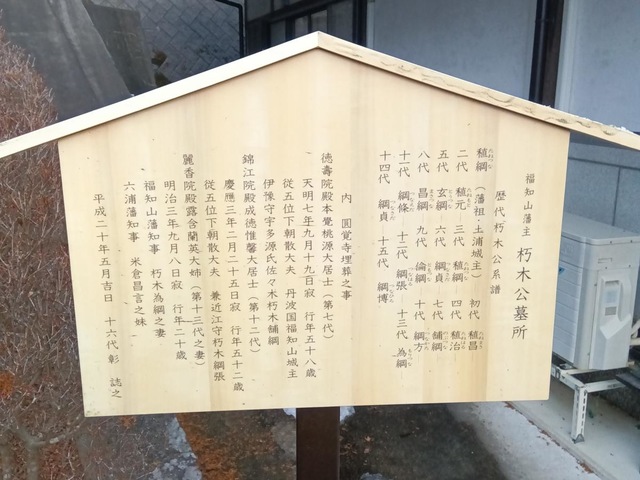 福知山藩主　朽木公墓所
歴代朽木公系譜
稙綱（藩祖・土浦城主）　初代　稙昌
二代　稙元　三代　稙綱　四代　稙治
五代　玄綱　六代　綱貞　七代　舗綱
八代　昌綱　九代　倫綱　十代　綱方
十一代　綱條　十二代　綱張　十三代　為綱
十四代　綱貞　十五代　綱博
内　圓覚寺埋葬之事
徳壽院殿本覺桃源大居士（第七代）
天明七年九月十九日寂　行年五十八歳
従五位下朝散大夫　丹波国福知山城主
伊豫守宇多源氏佐々木朽木舗綱
錦江院殿成徳惟馨大居士（第十二代）
慶應三年二月二十五日寂　行年五十二歳
従五位下朝散大夫　兼近江守朽木綱張
麗香院殿露含蘭英大姉（第十三代之妻）
明治三年九月八日寂　行年二十歳
福知山藩知事　朽木為綱之妻
六浦藩知事　米倉昌言之妹
平成二十年五月吉日　十六代　彰　誌之